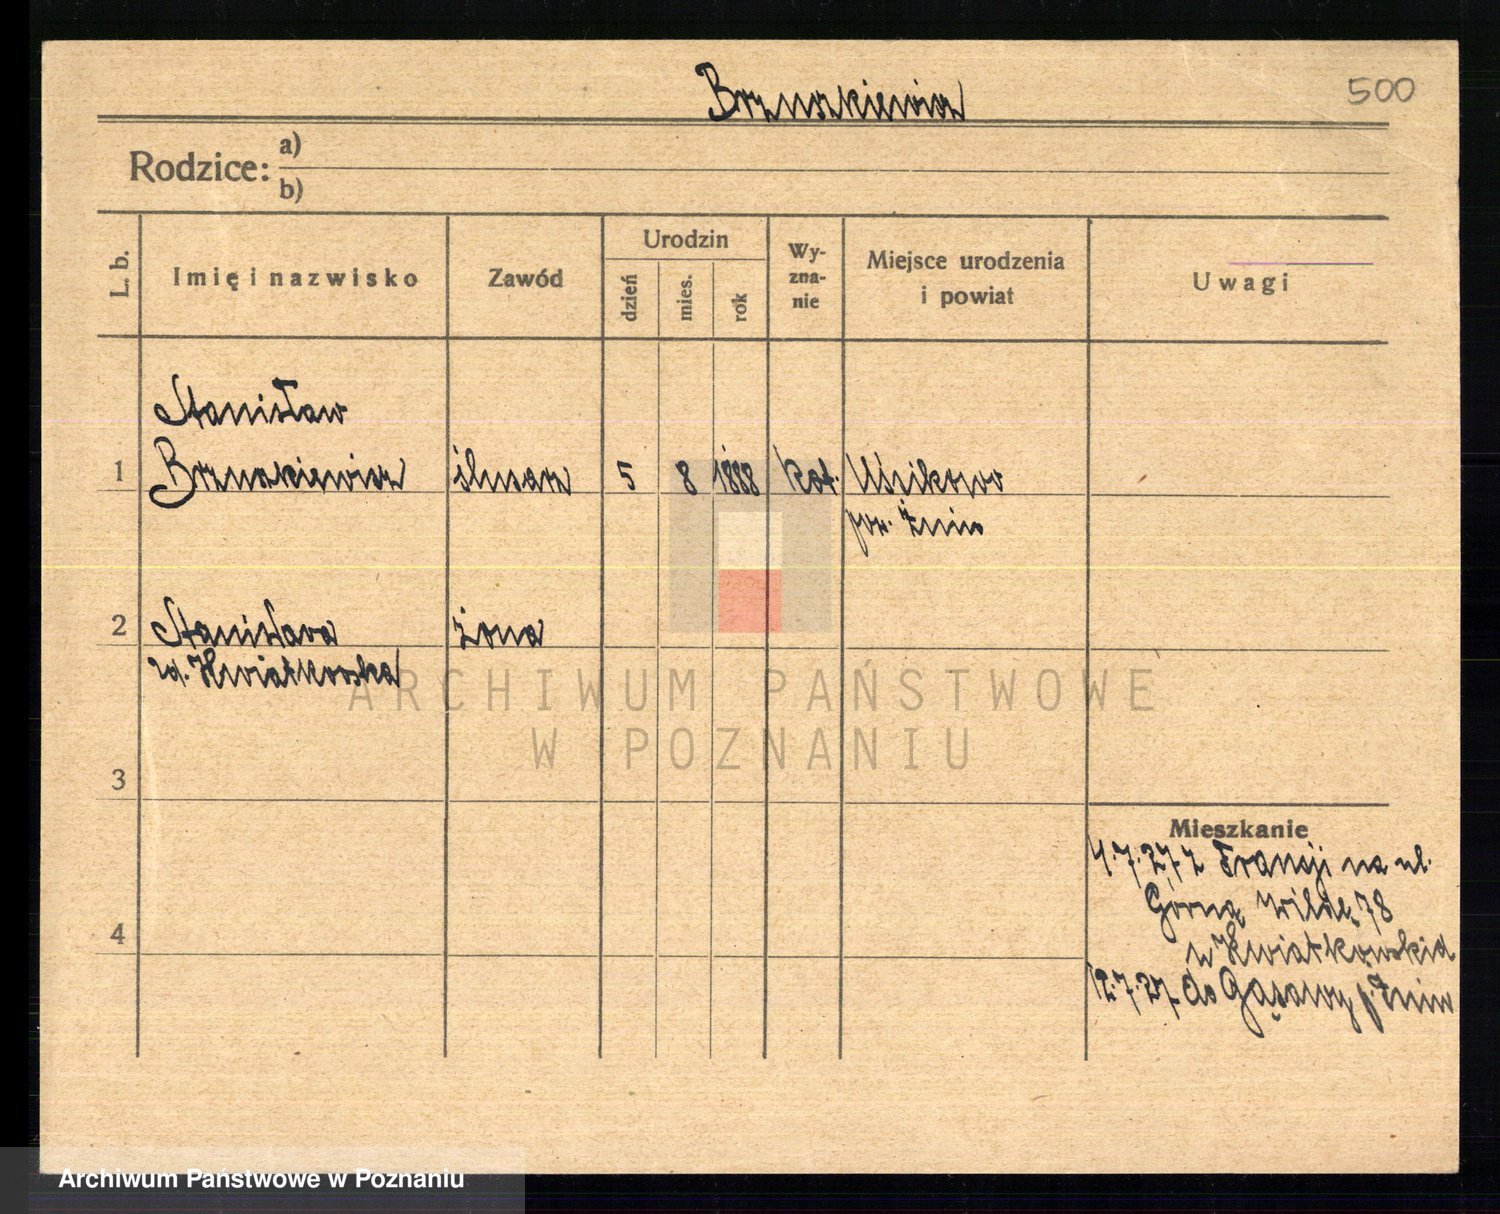 Brzuszkiewicz
500
Rodzice: a)
b)
L. b.
Imię i nazwisko
Zawód
Urodzin
dzień
mies.
rok
Wy-
zna-
nie
Miejsce urodzenia
i powiat
Uwagi
Stanisław
1 Brzuszkiewicz ślusarz 5 8 1888 kat. Uścikowo
pow. Żnin
2 Stanisława żona
zd. Kwiatkowska
3
4
Mieszkanie
4.7.27 z Francji na ul.
Górną Wildę 78
u Kwiatkowskich
12.7.27 do Gąsawy p. Żnin
ARCHIWUM PAŃSTWOWE
W POZNANIU
Archiwum Państwowe w Poznaniu